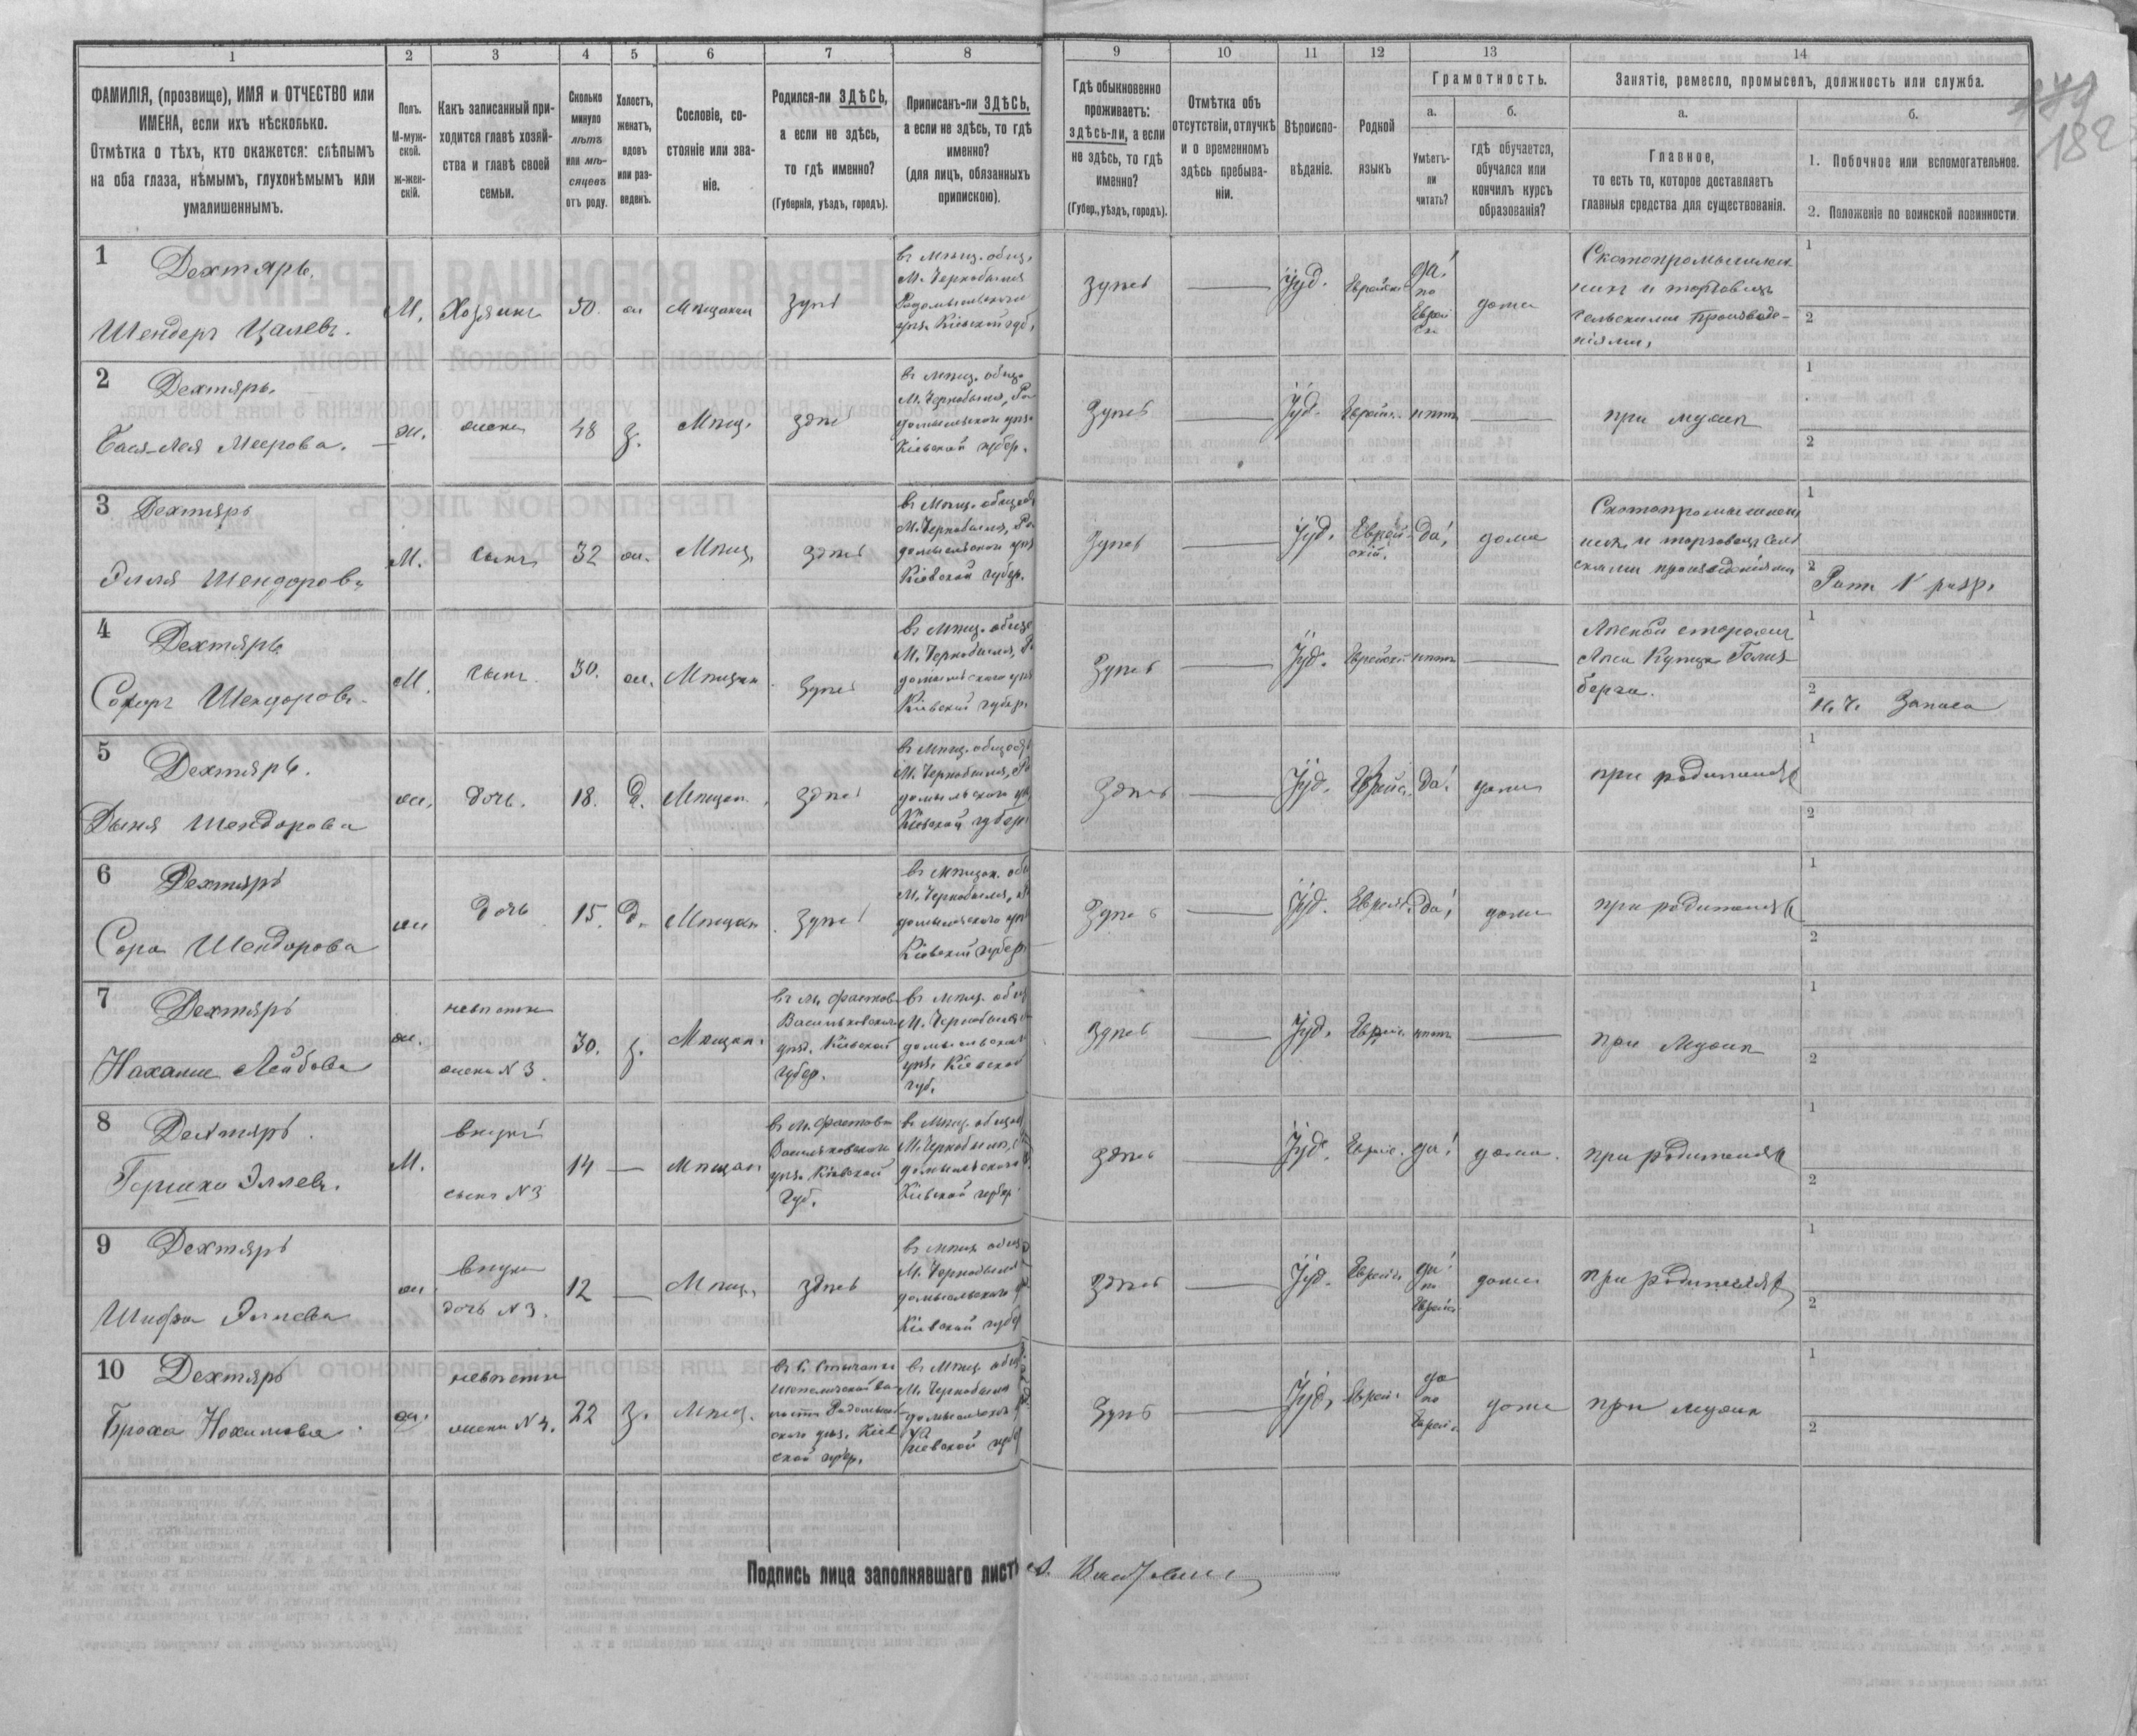 1 2 3 4 5 6 7 8 9 10 11 12 13 14
ФАМИЛІЯ, (прозвище), ИМЯ и ОТЧЕСТВО или
ИМЕНА, если ихъ нѣсколько.
Отмѣтка о тѣхъ, кто окажется: слѣпымъ
на оба глаза, нѣмымъ, глухонѣмымъ или
умалишеннымъ.
Полъ.
М-муж-
ской.
ж-жен-
скій.
Какъ записанный при-
ходится главѣ хозяй-
ства и главѣ своей
семьи.
Сколько
минуло
лѣтъ
или мѣ-
сяцевъ
отъ роду.
Холостъ,
женатъ,
вдовъ
или раз-
веденъ.
Сословіе, со-
стояніе или зва-
ніе.
Родился-ли ЗДѢСЬ,
а если не здѣсь,
то гдѣ именно?
(Губернія, уѣздъ, городъ).
Приписанъ-ли ЗДѢСЬ,
а если не здѣсь, то гдѣ
именно?
(для лицъ, обязанныхъ
припискою).
Гдѣ обыкновенно
проживаетъ:
ЗДѢСЬ-ли, а если
не здѣсь, то гдѣ
именно?
(Губер., уѣздъ, городъ).
Отмѣтка объ
отсутствіи, отлучкѣ
и о временномъ
здѣсь пребыва-
ніи.
Вѣроиспо-
вѣданіе.
Родной
языкъ
Грамотность.
а.
Умѣетъ-
ли
читать?
б.
гдѣ обучается,
обучался или
кончилъ курсъ
образованія?
Занятіе, ремесло, промыселъ, должность или служба.
а.
Главное,
то есть то, которое доставляетъ
главныя средства для существованія.
б.
1. Побочное или вспомогательное.
2. Положеніе по воинской повинности.
182
1 Дехтярь.
Шендеръ Цалевъ.
М. Хозяинъ 50. ж Мѣщанин здѣсь
въ Мѣщ. общ.
М. Чернобыля
Радомысльскаго
уѣз. Кіевской губ.
здѣсь Іуд. Еврейск.
да!
по
Еврей
ски
дома
Скотопромышлен
никъ и торговецъ
сельскими произведе-
ніями.
1
2
2 Дехтярь.
Бася-Лея Меерова.
ж. жена 48 з. Мѣщ. здѣсь
въ Мѣщ. общ.
М. Чернобыля, Ра
домысльскаго уѣз.
Кіевской губер.
здѣсь Іуд. Еврейс. нѣтъ при мужѣ
1
2
3 Дехтярь
Элля Шендоровъ
М. сынъ 32 ж. Мѣщ. здѣсь
въ Мѣщ. общес
М. Чернобыля, Ра
домысльскаго уѣз
Кіевской губер.
здѣсь Іуд. Еврей-
скій. Да! дома
Скотопромышлен
никъ и торговецъ сель
скими произведеніями
1
2 Ратн. 1 разр.
4 Дехтярь
Шендоровъ
М. сынъ 30. ж. Мѣщан. здѣсь
въ Мѣщ. обще
М. Чернобыля, Ра
домысльскаго уѣз
Кіевской губер.
здѣсь Іуд. Еврейскій нѣтъ
Лѣсной сторожъ
лѣса Купца
берга.
1
2 Н. Ч. Запаса
5 Дехтярь.
Дыня Шендорова
ж. дочь. 18. д. Мѣщан. здѣсь
въ Мѣщ. общес
М. Чернобыля, Ра
домысльскаго уѣз
Кіевской губер
здѣсь Іуд. Еврейс. Да! дома при родителях
1
2
6 Дехтярь
Сора Шендорова
ж дочь 15. д. Мѣщан. здѣсь
въ Мѣщан. общ
М. Чернобыля, Ра
домысльскаго уѣз
Кіевской губер
здѣсь Іуд. Еврейс. Да! дома при родителях
1
2
7 Дехтярь
Нахаме Лейбова
ж. невѣстка
жена N 3
30. з. Мѣщан.
въ М. Фастов
Васильковскаго
уѣзд. Кіевской
Губер.
въ Мѣщ. общ
М. Чернобыля
домысльскаго
уѣз. Кіевской
губ.
здѣсь Іуд. Еврейс. нѣтъ при мужѣ
1
2
8 Дехтярь.
Гершко Эллевъ.
М. внукъ
сынъ N 3
14 — Мѣщан
въ М. Фастов
Васильковскаго
уѣз. Кіевской
Губ.
въ Мѣщ. общес
М. Чернобыля,
домысльскаго
Кіевской губер
здѣсь Іуд. Еврейс. да! дома. при родителях
1
2
9 Дехтярь
Шифра Эллева
ж. внучка
дочь N 3.
12 — Мѣщ. здѣсь
въ Мѣщ общ
М. Чернобыля
домысльскаго
Кіевской губ
здѣсь Іуд. Еврейс.
да!
по
Еврейс
дома при родителях
1
2
10 Дехтярь
Броха Нохимова
ж. невѣстка
жена N 4.
22 з. Мѣщ.
въ С.
волости Радомысль
скаго уѣз. Кіев
ской губер.
въ Мѣщ. общ.
М. Чернобыля
домысльскаго
Кіевской губ
здѣсь Іуд. Еврей.
да
по
Еврейс
дома при мужѣ
1
2
Подпись лица заполнявшаго листъ